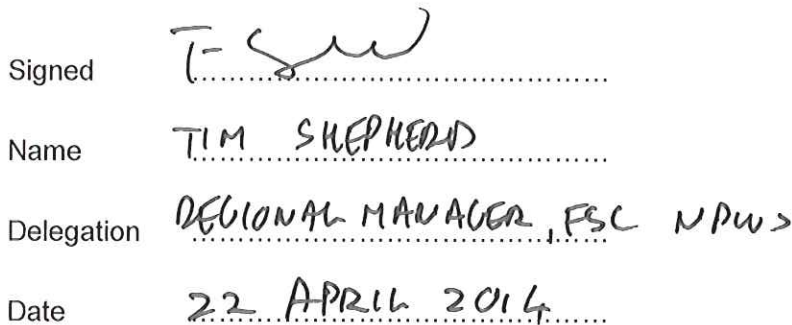 Signed T-Shep
Name TIM SHEPHERD
Delegation REGIONAL MANAGER, FSC NPWS
Date 22 APRIL 2014